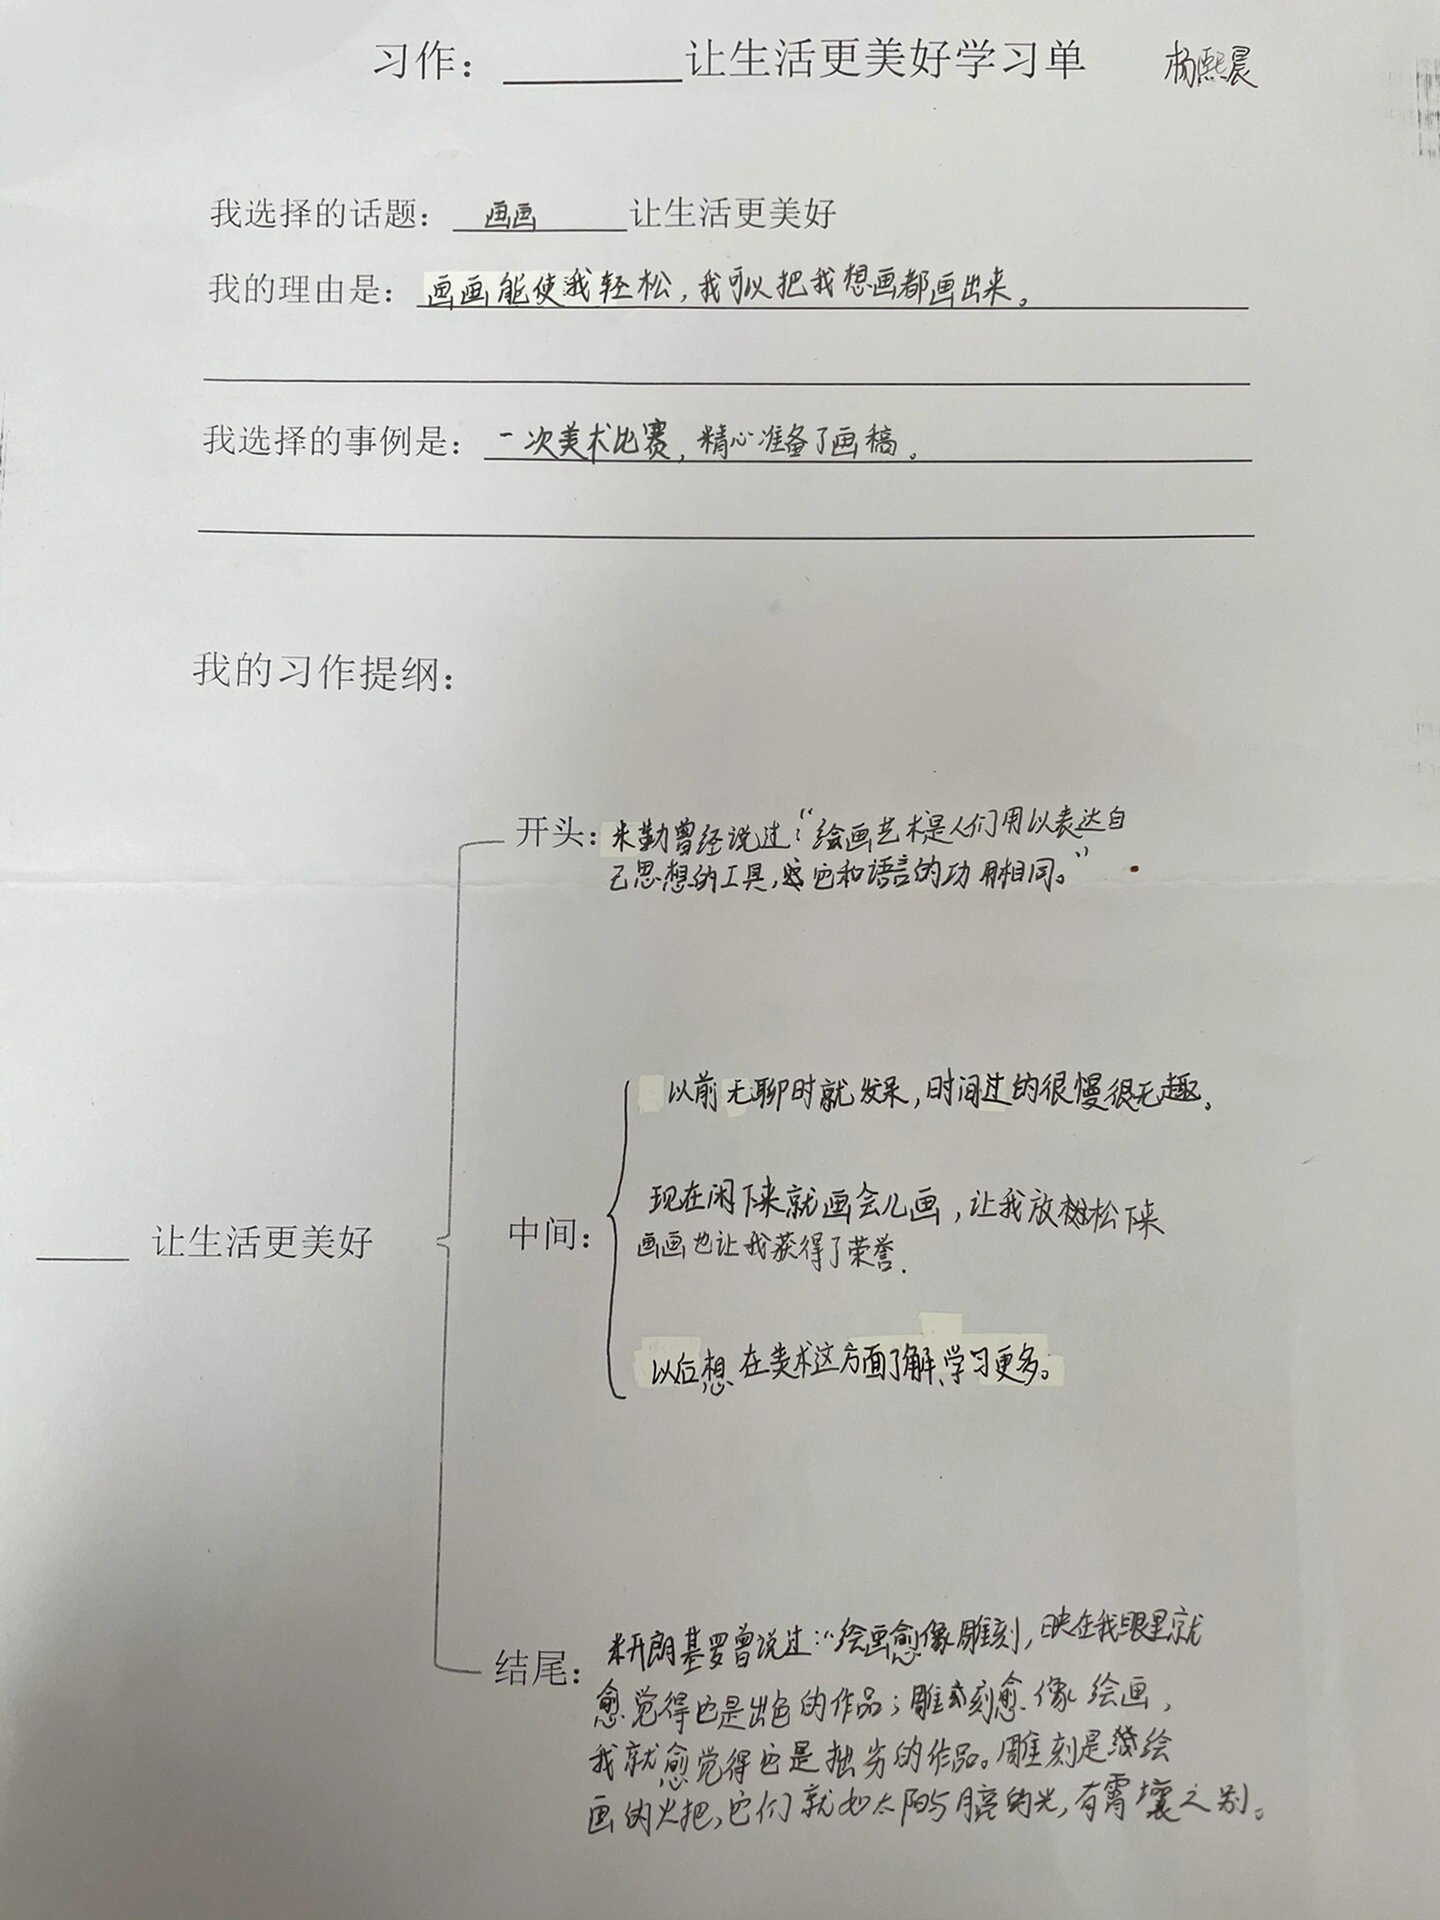 习作：______让生活更美好学习单 杨熙晨
我选择的话题：画画让生活更美好
我的理由是：画画能使我轻松，我可以把我想画都画出来。
我选择的事例是：一次美术比赛，精心准备了画稿。
我的习作提纲：
开头：米勒曾经说过：“绘画艺术是人们用以表达自
己思想的工具，它和语言的功用相同。”
以前无聊时就发呆，时间过的很慢很无趣。
现在闲下来就画会儿画，让我放松下来
____ 让生活更美好 中间：
画画也让我获得了荣誉.
以后想在美术这方面了解、学习更多。
结尾：米开朗基罗曾说过：“绘画愈像雕刻，映在我眼里就
愈觉得也是出色的作品；雕刻愈像绘画，
我就愈觉得它是拙劣的作品。雕刻是绘
画的火把，它们就如太阳与月亮的光，有霄壤之别。